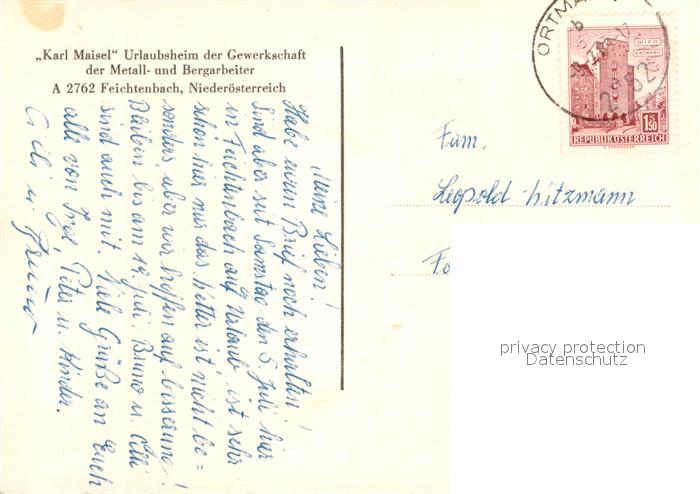 „Karl Maisel" Urlaubsheim der Gewerkschaft
der Metall- und Bergarbeiter
A 2762 Feichtenbach, Niederösterreich
Meine Lieben!
Habe euren Brief noch erhalten!
Sind aber seit Samstag den 5. Juli hier
in Feichtenbach auf Urlaub ist sehr
schön hier nur das Wetter ist nicht be=
sonders aber wir hoffen auf besserung!
Bleiben bis am 19. Juli. Bruno u. Cilli
sind auch mit. Viele Grüße an Euch
alle von Inge, Peter u. Kinder.
Cilli u. Bruno
ORTMA
b
WIEN
ERDBERG
1.50
S
REPUBLIK ÖSTERREICH
Fam.
Leopold Witzmann
privacy protection
Datenschutz